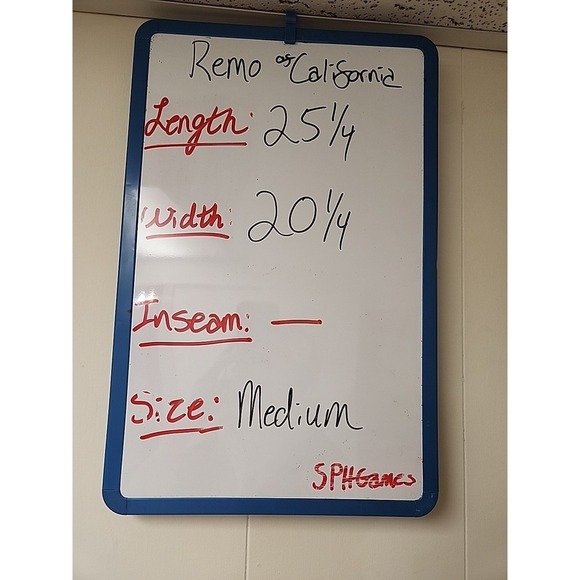 Remo of California
Length: 25 1/4
Width: 20 1/4
Inseam: —
Size: Medium
SPHGames